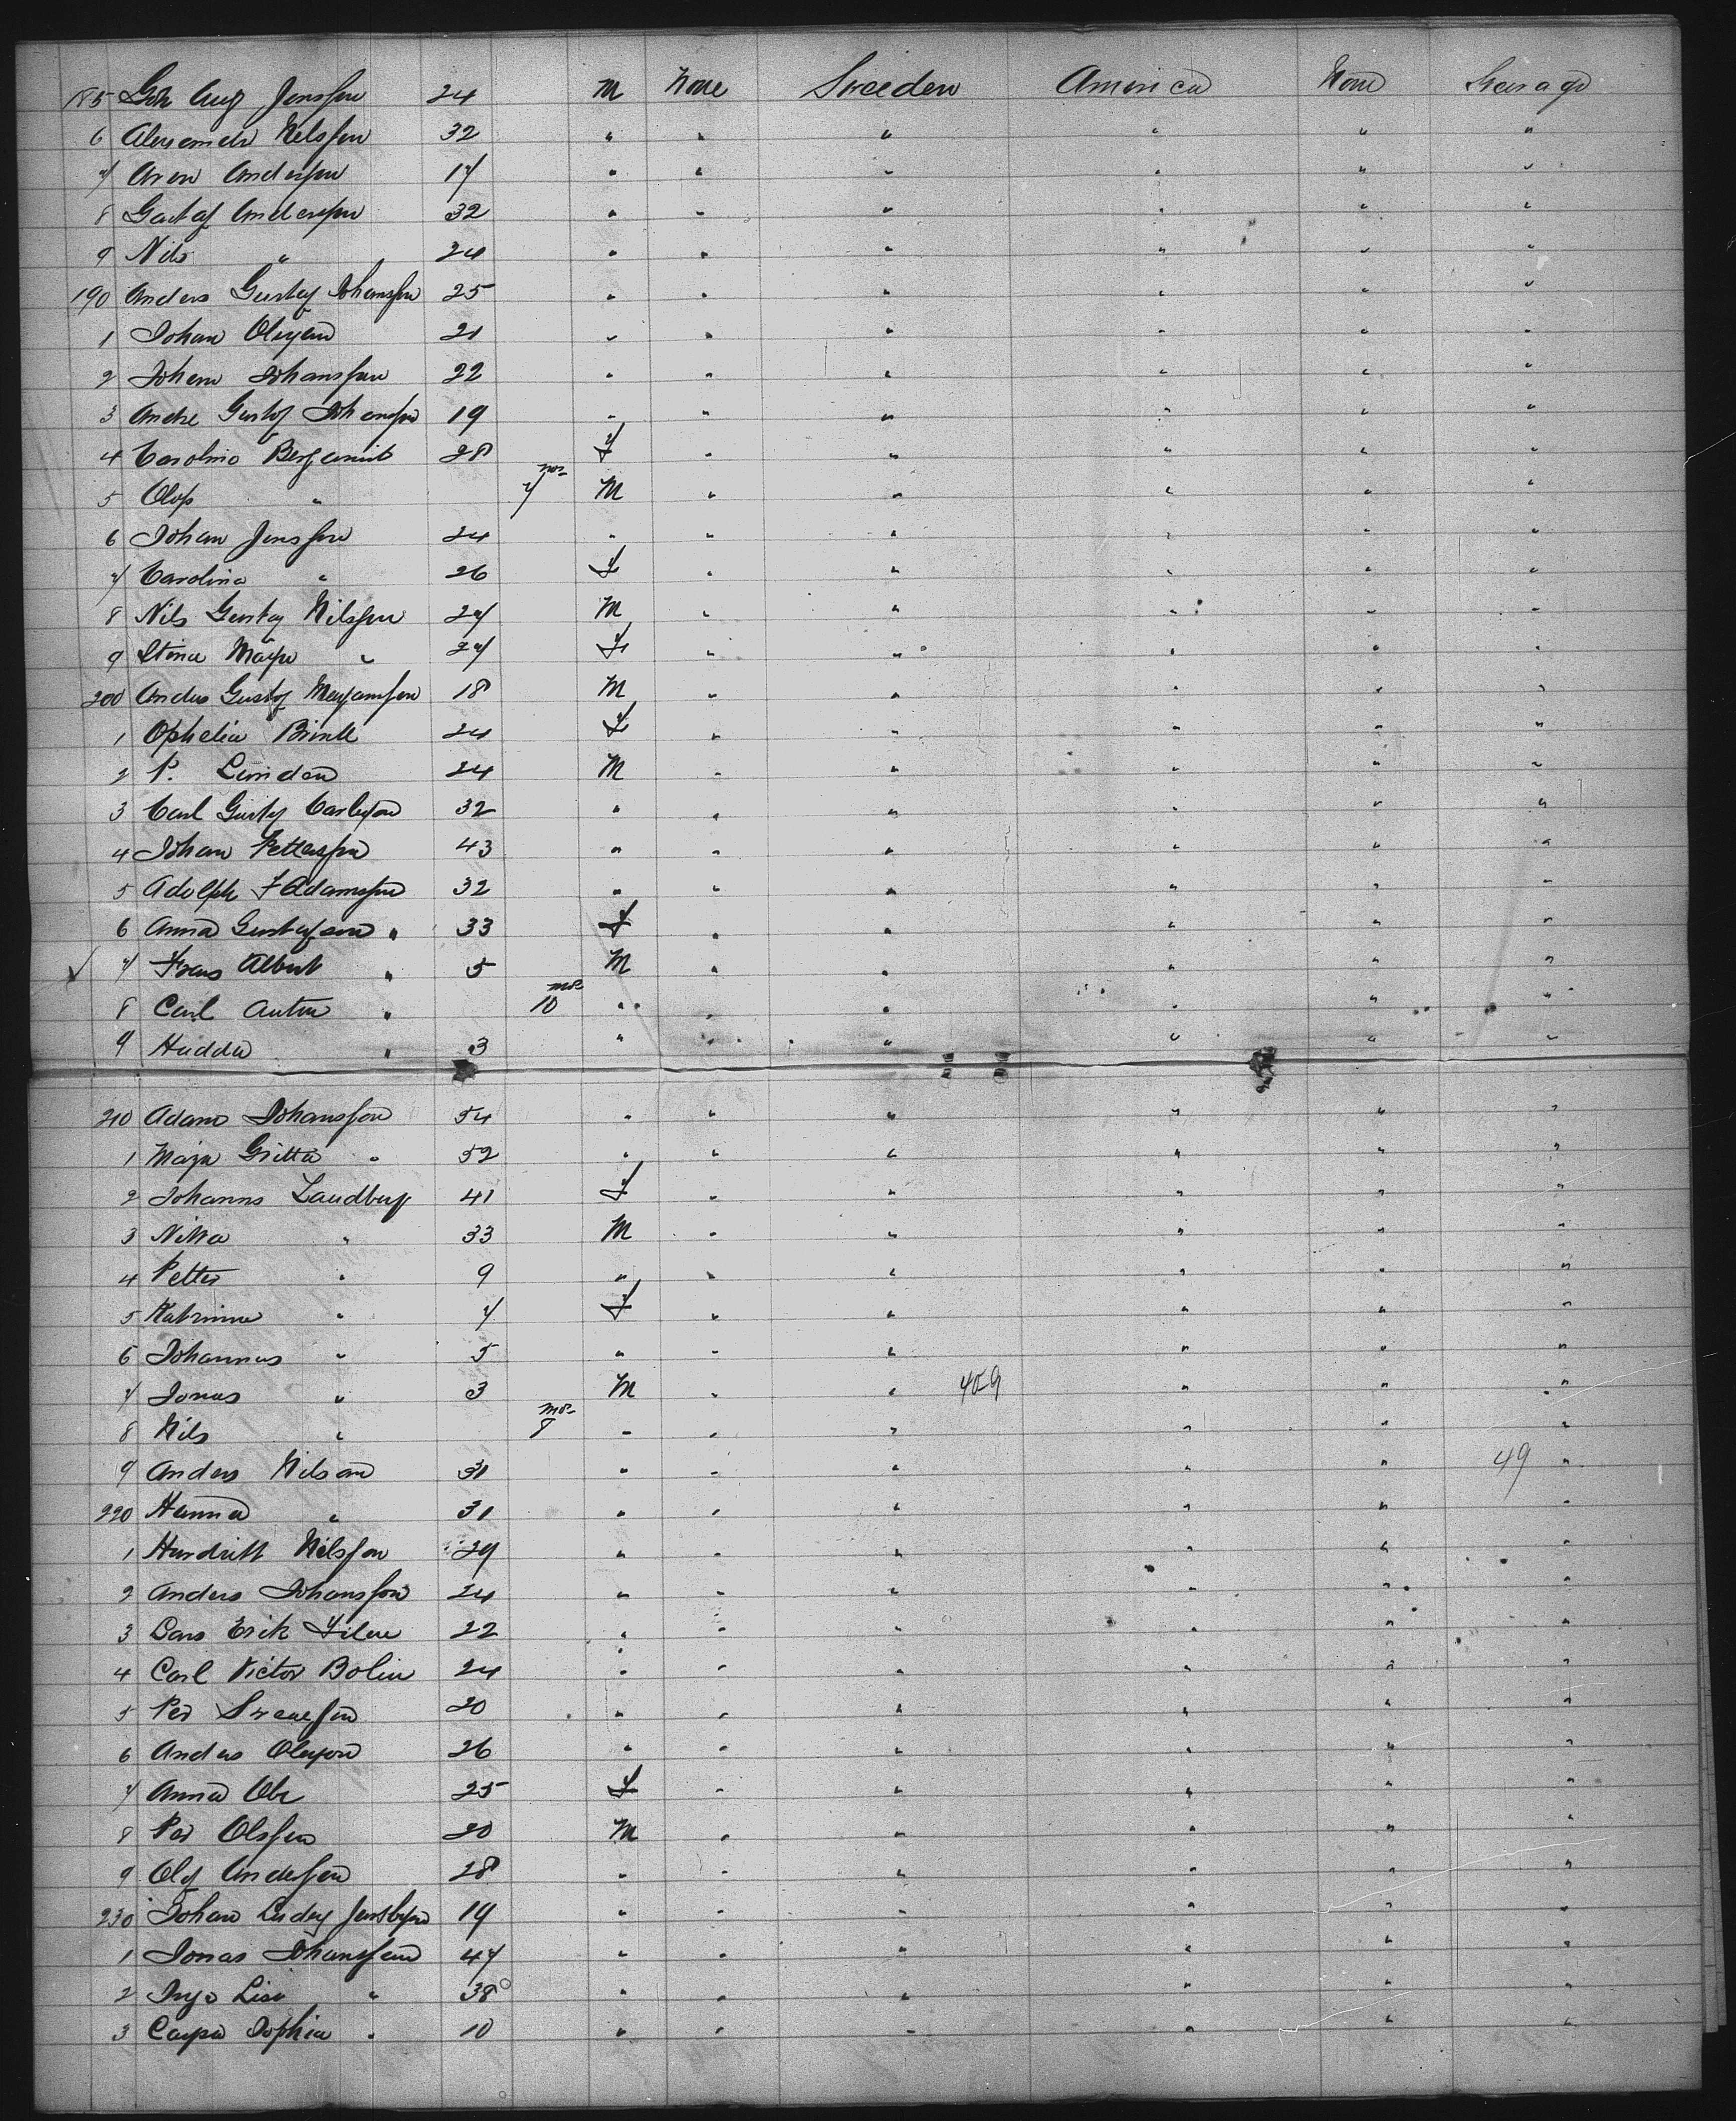 185 Joh Aug Jonsson 24 M None Sweden America None Steerage
6 Alexander Nelsson 32 " " " " " "
7 Aron Andersson 17 " " " " " "
8 Gustaf Andersson 32 " " " " " "
9 Nils " 24 " " " " " "
190 Anders Gustaf Johansson 25 " " " " " "
1 Johan 21 " " " " " "
2 Johan Johansson 22 " " " " " "
3 Andre Gustof Johansson 19 " " " " " "
4 Carolina 28 F " " " " "
5 Olof " 7 mos M " " " " "
6 Johan Jonsson 24 " " " " " "
7 Carolina " 26 F " " " " "
8 Nils Gustaf Nilsson 27 M " " " " "
9 Stina Maija " 27 F " " " " "
200 Andes Gustof 18 M " " " " "
1 Ophelia Brink 24 F " " " " "
2 P. Lundan 24 M " " " " "
3 Carl Gustof Carlsson 32 " " " " " "
4 Johan Pettersson 43 " " " " " "
5 Adolph F Adamsson 32 " " " " " "
6 Anna Gustafson " 33 F " " " " "
7 Frans Albert " 5 M " " " " "
8 Carl Anton " 10 mos " " " " " "
9 Hedda " 3 " " " " " "
210 Adam Johansson 54 " " " " " "
1 Maja Gritta " 52 " " " " " "
2 Johanns Landberg 41 F " " " " "
3 " 33 M " " " " "
4 Petter " 9 " " " " " "
5 Katrinna " 7 F " " " " "
6 Johannes " 5 " " " " " "
7 Jonas " 3 M " " 409 " " "
8 Nils " 8 mos " " " " " "
9 Anders Nilson 31 " " " " " 49 "
220 Hanna " 31 " " " " " "
1 Nilsson 29 " " " " " "
2 Anders Johansson 24 " " " " " "
3 Lars Erik 22 " " " " " "
4 Carl Victor Bolin 24 " " " " " "
5 Per Swensson 20 " " " " " "
6 Andes Olsson 26 " " " " " "
7 Anna 25 F " " " " "
8 Per Olsson 20 M " " " " "
9 Olof Andersson 28 " " " " " "
230 Johan 19 " " " " " "
1 Jonas Johansson 47 " " " " " "
2 Inga Lisa " 38 " " " " " "
3 Sophia " 10 " " " " " "